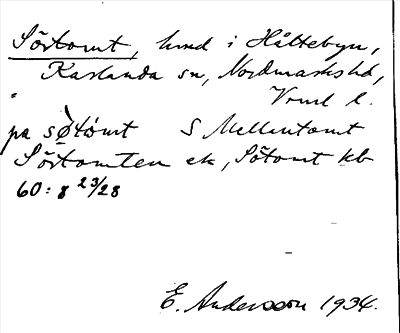 Sörtomt, hmd i Håltebyn,
Karlanda sn, Nordmarks hd,
Vrml l.
på sø̀tómt S Mellentomt
Sörtomten ek, Sötomt kb
60: 8 23/28
E. Andersson 1934.